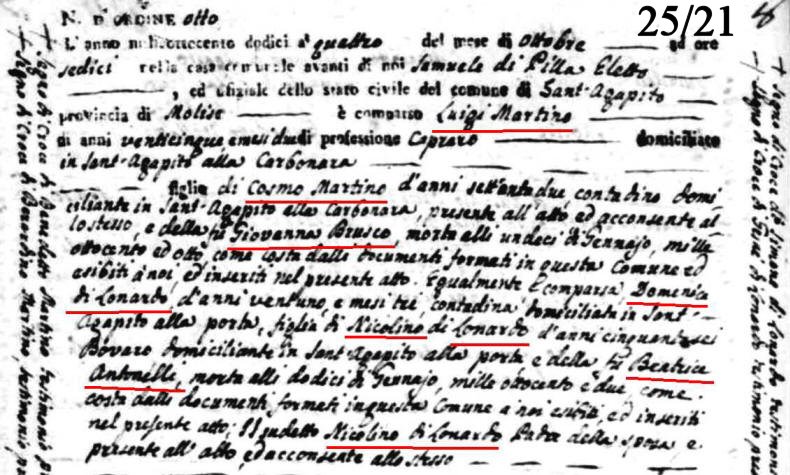 25/21
N. D'ORDINE otto
L'anno mille ottocento dodici a' quattro del mese di ottobre ad ore
sedici nella casa comunale avanti di noi Samuele di Pilla Eletto
, ed ufiziale dello stato civile del comune di Sant'Agapito
provincia di Molise è comparso Luigi Martino
di anni venticinque e mesi due di professione Capraro domiciliato
in Sant-Agapito alla Carbonara
figlio di Cosmo Martino d'anni settantadue, contadino domi
ciliante in Sant-Agapito alla Carbonara, presente all'atto ed acconsente al
lo stesso, e della fu Giovanna Brusco, morta alli undeci di Gennajo, mille
ottocento ed otto, come costa dalli documenti formati in questa Comune ed
esibiti a noi, ed inseriti nel presente atto. Egualmente è comparsa Domenica
di Lonardo, d'anni ventuno, e mesi tre, contadina, domiciliata in Sant-
Agapito alla porta, figlia di Nicolino di Lonardo d'anni cinquantasei
Bovaro domiciliante in Sant-Agapito alla porta e della fu Beatrice
Antonelli, morta alli dodici di Gennajo, mille ottocento e due, come
costa dalli documenti formati in questa Comune a noi esibiti, ed inseriti
nel presente atto: Il sudetto Nicolino di Lonardo Padre della sposa, e
presente all'atto, ed acconsente allo stesso
+ Segno di Croce di Benedetto Martino testimonio
+ Segno di Croce di Berardino Martino, testimonio, pa
+ Segno di Croce di Simone di Lonardo testimonio
+ Segno di Croce di di Lonardo testimonio pa